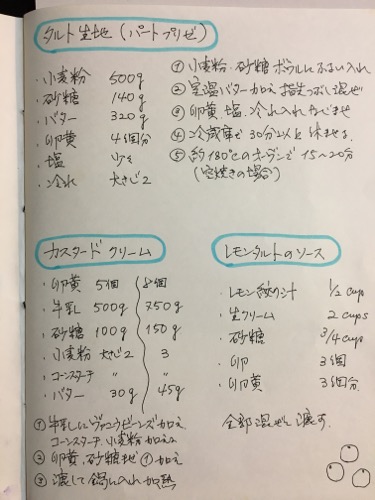 タルト生地(パートブリゼ)
・小麦粉 500g
・砂糖 140g
・バター 320g
・卵黄 4個分
・塩 少々
・冷水 大さじ2
① 小麦粉・砂糖 ボウルにふるい入れ
② 室温バター加え 指先でつぶし混ぜ
③ 卵黄、塩、冷水入れなじませ
④ 冷蔵庫で30分以上休ませる
⑤ 約180℃のオーブンで15〜20分
(空焼きの場合)
カスタードクリーム
・卵黄 5個 8個
・牛乳 500g 750g
・砂糖 100g 150g
・小麦粉 大さじ2 3
・コーンスターチ 〃 〃
・バター 30g 45g
① 牛乳にヴァニラビーンズ加え
コーンスターチ、小麦粉加える
② 卵黄、砂糖まぜ ①加え
③ 漉して鍋に入れ加熱
レモンタルトのソース
・レモン絞り汁 1/2 cups
・生クリーム 2 cups
・砂糖 3/4 cups
・卵 3個
・卵黄 3個分
全部混ぜて漉す。